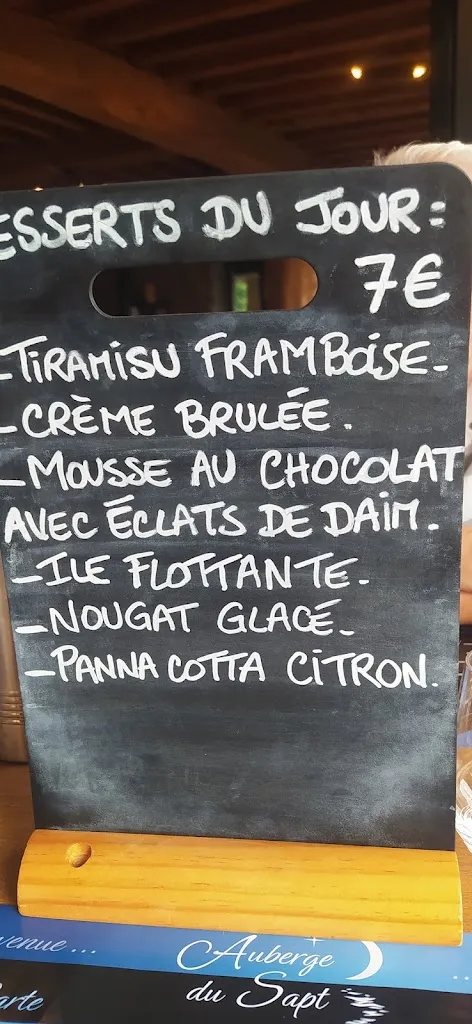 ESSERTS DU JOUR:
7€
-TIRAMISU FRAMBOISE-
-CRÈME BRULÉE.
-MOUSSE AU CHOCOLAT
AVEC ÉCLATS DE DAIM.
-ILE FLOTTANTE.
-NOUGAT GLACÉ.
-PANNA COTTA CITRON.
venue ...
Auberge
du Sapt
arte